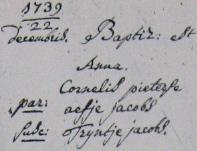 1739
22
decembris. Baptiz: est
Anna.
Cornelis pieterse
par: aefje jacobs
susc: Tryntje jacobs.